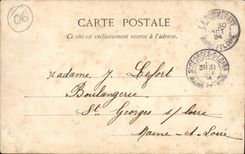 06
CARTE POSTALE
Ce côté est exclusivement réservé à l'adresse.
30
OCT
04
ST GEORGES-S-LOIRE
31
Madame J. Lefort
Boulangerie
St Georges s/ Loire
Maine-et-Loire